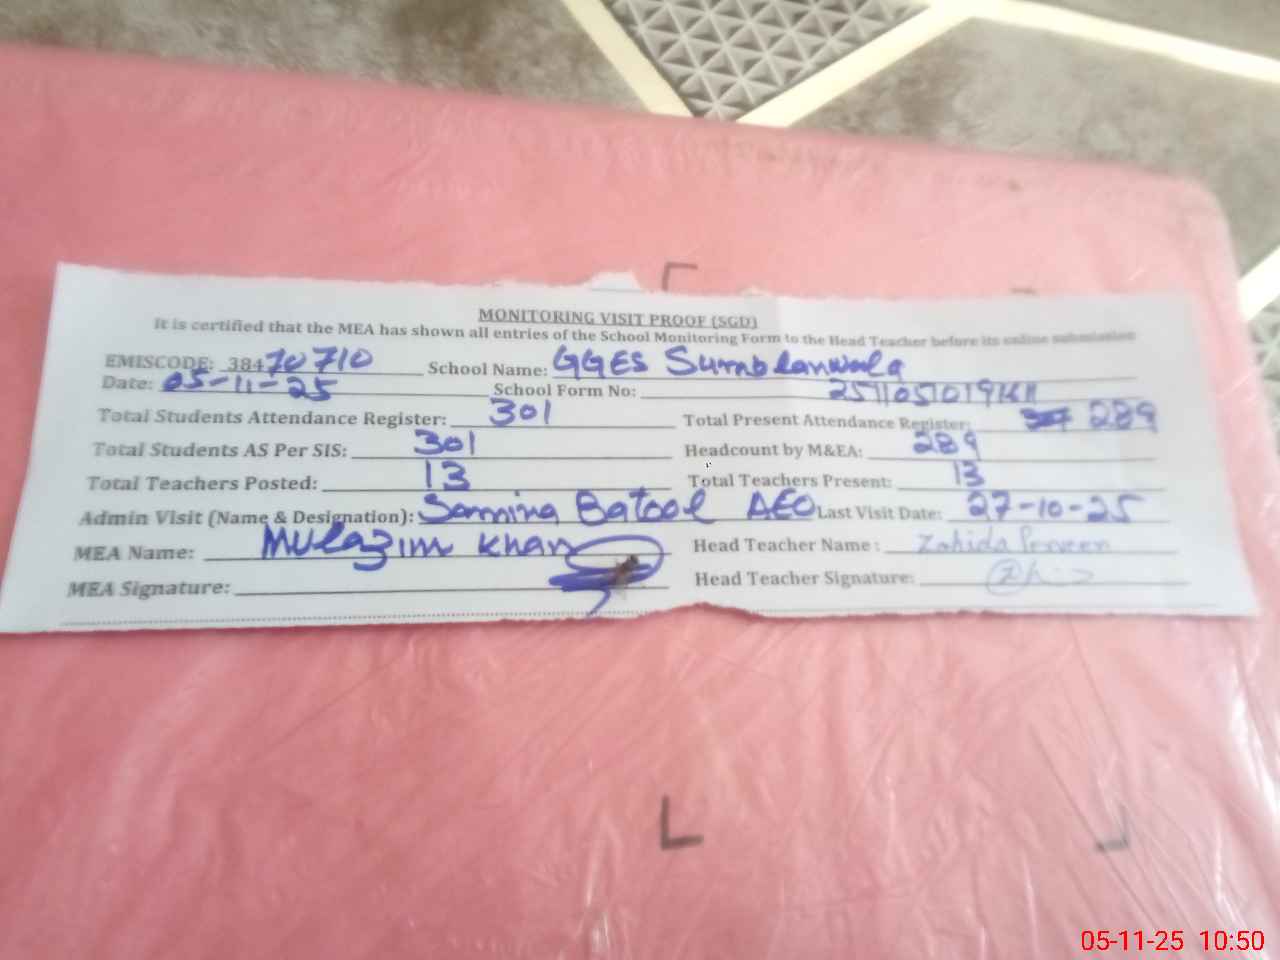 MONITORING VISIT PROOF (SGD)
It is certified that the MEA has shown all entries of the School Monitoring Form to the Head Teacher before its online submission
EMISCODE: 38470710 School Name: GGES Sumblanwala
Date: 05-11-25 School Form No:
Total Students Attendance Register: 301 Total Present Attendance Register: 289
Total Students AS Per SIS: 301 Headcount by M&EA: 289
Total Teachers Posted: 13 Total Teachers Present: 13
Admin Visit (Name & Designation): Samina Batool AEO Last Visit Date: 27-10-25
MEA Name: Mulazim Khan Head Teacher Name: Zahida Perveen
MEA Signature: Head Teacher Signature:
05-11-25 10:50